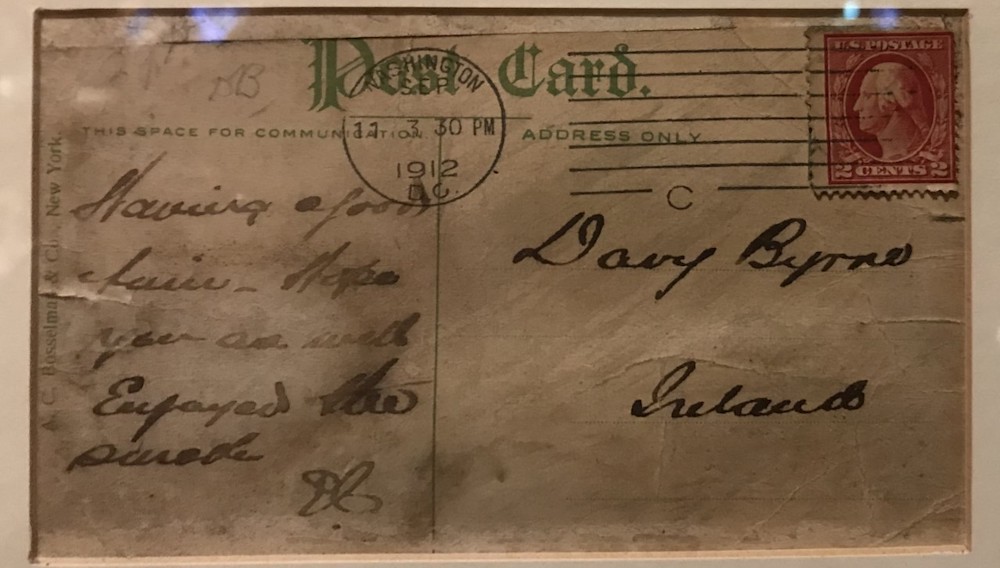 Post Card.
WASHINGTON
SEP
11 3 30 PM
1912
D.C.
C
U.S. POSTAGE
2 CENTS 2
AB
THIS SPACE FOR COMMUNICATION
ADDRESS ONLY
A. C. Bosselman & Co., New York.
Having a good
time - Hope
you are well
Enjoyed the
Davy Byrne
Ireland